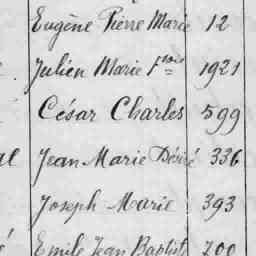 Eugène Pierre Marie 12
Julien Marie Fçois 1921
César Charles 599
Jean Marie Désiré 336
Joseph Marie 393
Emile Jean Baptist 200